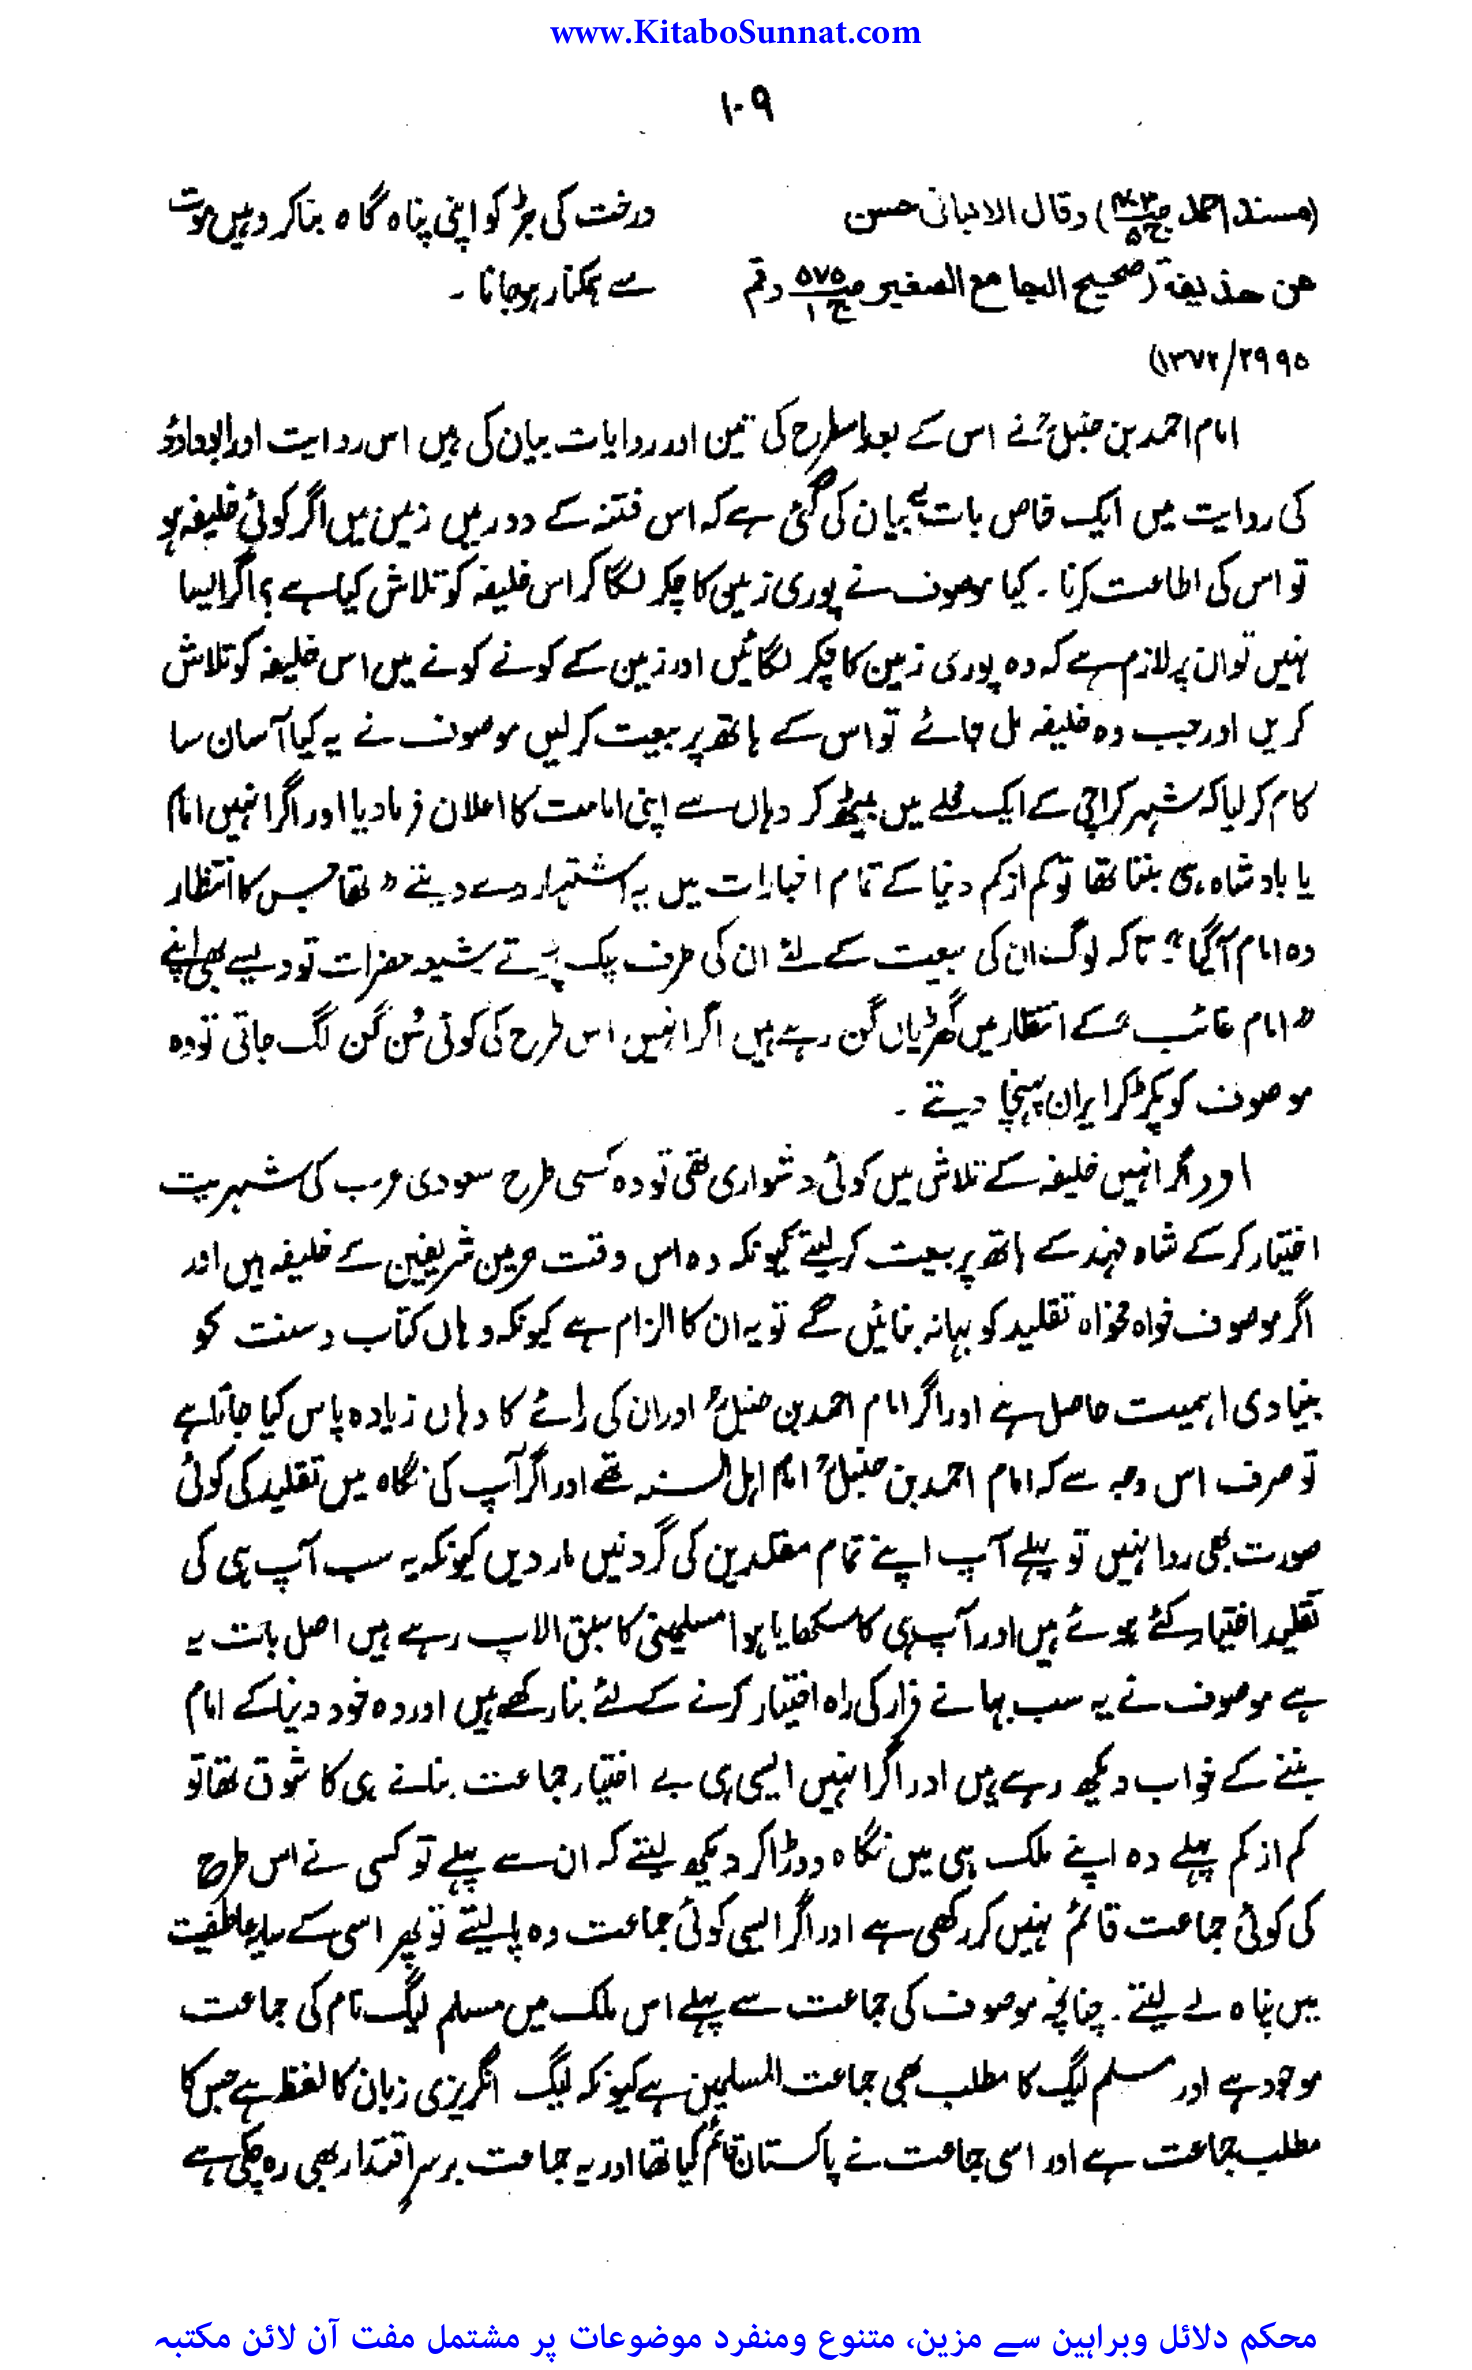 www.KitaboSunnat.com
۱۰۹
(مسند احمد ص۴۰۳ ج۵) وقال الالبانی حسن
عن حذیفة (صحیح الجامع الصغیر ص۵۷۵ ج۱ رقم
۲۹۹۵/۱۳۷۲)
درخت کی جڑ کو اپنی پناہ گاہ بنا کر وہیں موت
سے ہمکنار ہوجانا ۔
امام احمد بن حنبلؒ نے اس کے بعد اسطرح کی تین اور روایات بیان کی ہیں اس روایت اور ابوداؤد
کی روایت میں ایک خاص بات یہ بیان کی گئی ہے کہ اس فتنہ کے دور میں زمین میں اگر کوئی خلیفہ ہو
تو اس کی اطاعت کرنا ۔ کیا موصوف نے پوری زمین کا چکر لگا کر اس خلیفہ کو تلاش کیا ہے ؟ اگر ایسا
نہیں تو ان پر لازم ہے کہ وہ پوری زمین کا چکر لگائیں اور زمین کے کونے کونے میں اس خلیفہ کو تلاش
کریں اور جب وہ خلیفہ مل جائے تو اس کے ہاتھ پر بیعت کرلیں موصوف نے یہ کیا آسان سا
کام کر لیا کہ شہر کراچی کے ایک محلے میں بیٹھ کر وہاں سے اپنی امامت کا اعلان فرما دیا اور اگر انہیں امام
یا بادشاہ ہی بننا تھا تو کم از کم دنیا کے تمام اخبارات میں یہ اشتہار دے دیتے "تھا جس کا انتظار
وہ امام آگیا"۔ تاکہ لوگ ان کی بیعت کے لئے ان کی طرف لپک پڑتے شیعہ حضرات تو ویسے بھی اپنے
"امام غائب" کے انتظار میں گھڑیاں گن رہے ہیں اگر انہیں اس طرح کی کوئی سُن گن لگ جاتی تو وہ
موصوف کو پکڑ کر ایران پہنچا دیتے ۔
اور اگر انہیں خلیفہ کے تلاش میں کوئی دشواری تھی تو وہ کسی طرح سعودی عرب کی شہریت
اختیار کرکے شاہ فہد کے ہاتھ پر بیعت کر لیتے کیونکہ وہ اس وقت حرمین شریفین کے خلیفہ ہیں اور
اگر موصوف خواہ مخواہ تقلید کو بہانہ بنائیں گے تو یہ ان کا الزام ہے کیونکہ وہاں کتاب و سنت کو
بنیادی اہمیت حاصل ہے اور اگر امام احمد بن حنبلؒ اور ان کی رائے کا وہاں زیادہ پاس کیا جاتا ہے
تو صرف اس وجہ سے کہ امام احمد بن حنبلؒ امام اہل السنہ تھے اور اگر آپ کی نگاہ میں تقلید کی کوئی
صورت بھی روا نہیں تو پہلے آپ اپنے تمام مقلدین کی گردنیں مار دیں کیونکہ یہ سب آپ ہی کی
تقلید اختیار کئے ہوئے ہیں اور آپ ہی کا سکھایا ہوا مسلمین کا سبق الاپ رہے ہیں اصل بات یہ
ہے موصوف نے یہ سب بہانے فرار کی راہ اختیار کرنے کے لئے بنا رکھے ہیں اور وہ خود دنیا کے امام
بننے کے خواب دیکھ رہے ہیں اور اگر انہیں ایسی ہی بے اختیار جماعت بنانے ہی کا شوق تھا تو
کم از کم پہلے وہ اپنے ملک ہی میں نگاہ دوڑا کر دیکھ لیتے کہ ان سے پہلے تو کسی نے اس طرح
کی کوئی جماعت قائم نہیں کر رکھی ہے اور اگر ایسی کوئی جماعت وہ پا لیتے تو پھر اسی کے سایہ عاطفیت
میں پناہ لے لیتے ۔ چنانچہ موصوف کی جماعت سے پہلے اس ملک میں مسلم لیگ نام کی جماعت
موجود ہے اور مسلم لیگ کا مطلب بھی جماعت المسلمین ہے کیونکہ لیگ انگریزی زبان کا لفظ ہے جس کا
مطلب جماعت ہے اور اسی جماعت نے پاکستان قائم کیا تھا اور یہ جماعت برسرِ اقتدار بھی رہ چکی ہے
محکم دلائل وبراہین سے مزین، متنوع ومنفرد موضوعات پر مشتمل مفت آن لائن مکتبہ